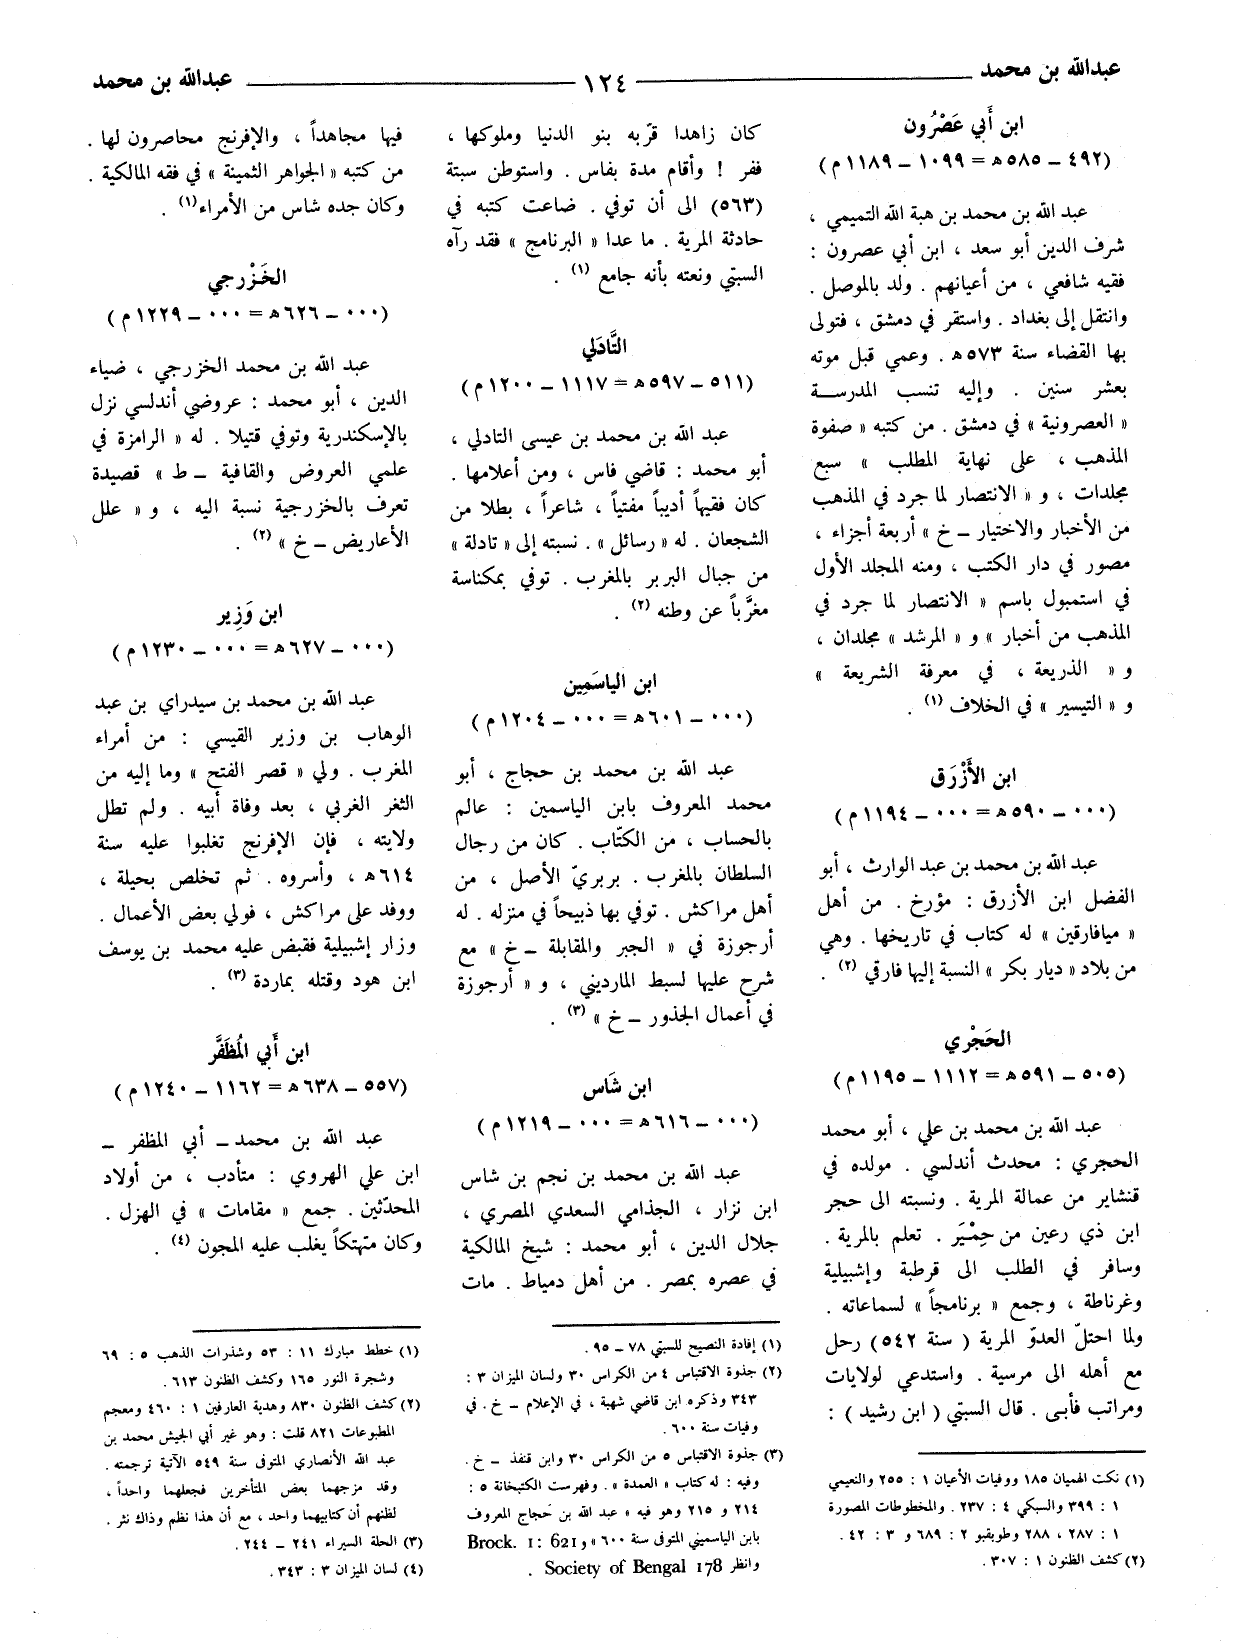 عبدالله بن محمد ـــــ ١٢٤ ـــــ عبدالله بن محمد
ابن أَبي عَصْرُون
(٤٩٢ ــ ٥٨٥ ه = ١٠٩٩ ــ ١١٨٩ م)
عبد الله بن محمد بن هبة الله التميمي ،
شرف الدين أبو سعد ، ابن أبي عصرون :
فقيه شافعي ، من أعيانهم . ولد بالموصل .
وانتقل إلى بغداد . واستقر في دمشق ، فتولى
بها القضاء سنة ٥٧٣ ه . وعمي قبل موته
بعشر سنين . وإليه تنسب المدرســة
« العصرونية » في دمشق . من كتبه « صفوة
المذهب ، على نهاية المطلب » سبع
مجلدات ، و « الانتصار لما جرد في المذهب
من الأخبار والاختيار ــ خ » أربعة أجزاء ،
مصور في دار الكتب ، ومنه المجلد الأول
في استمبول باسم « الانتصار لما جرد في
المذهب من أخبار » و « المرشد » مجلدان ،
و « الذريعة ، في معرفة الشريعة »
و « التيسير » في الخلاف (١) .
ابن الأَزْرَق
(٠٠٠ ــ ٥٩٠ ه = ٠٠٠ ــ ١١٩٤ م)
عبد الله بن محمد بن عبد الوارث ، أبو
الفضل ابن الأزرق : مؤرخ . من أهل
« ميافارقين » له كتاب في تاريخها . وهي
من بلاد « ديار بكر » النسبة إليها فارقي (٢) .
الحَجْري
(٥٠٥ ــ ٥٩١ ه = ١١١٢ ــ ١١٩٥ م)
عبد الله بن محمد بن علي ، أبو محمد
الحجري : محدث أندلسي . مولده في
قنشاير من عمالة المرية . ونسبته الى حجر
ابن ذي رعين من حِمْيَر . تعلم بالمرية .
وسافر في الطلب الى قرطبة وإشبيلية
وغرناطة ، وجمع « برنامجاً » لسماعاته .
ولما احتلّ العدوّ المرية ( سنة ٥٤٢) رحل
مع أهله الى مرسية . واستدعي لولايات
ومراتب فأبى . قال السبتي ( ابن رشيد ) :
(١) نكت الهميان ١٨٥ ووفيات الأعيان ١ : ٢٥٥ والنعيمي
١ : ٣٩٩ والسبكي ٤ : ٢٣٧ . والمخطوطات المصورة
١ : ٢٨٧ ، ٢٨٨ وطوبقبو ٢ : ٦٨٩ و ٣ : ٤٢ .
(٢) كشف الظنون ١ : ٣٠٧ .
كان زاهدا قرّبه بنو الدنيا وملوكها ،
ففر ! وأقام مدة بفاس . واستوطن سبتة
(٥٦٣) الى أن توفي . ضاعت كتبه في
حادثة المرية . ما عدا « البرنامج » فقد رآه
السبتي ونعته بأنه جامع (١) .
التَّادَلي
(٥١١ ــ ٥٩٧ ه = ١١١٧ ــ ١٢٠٠ م)
عبد الله بن محمد بن عيسى التادلي ،
أبو محمد : قاضي فاس ، ومن أعلامها .
كان فقيهاً أديباً مفتياً ، شاعراً ، بطلا من
الشجعان . له « رسائل » . نسبته إلى « تادلة »
من جبال البربر بالمغرب . توفي بمكناسة
مغرَّباً عن وطنه (٢) .
ابن الياسَمِين
(٠٠٠ ــ ٦٠١ ه = ٠٠٠ ــ ١٢٠٤ م)
عبد الله بن محمد بن حجاج ، أبو
محمد المعروف بابن الياسمين : عالم
بالحساب ، من الكتّاب . كان من رجال
السلطان بالمغرب . بربريّ الأصل ، من
أهل مراكش . توفي بها ذبيحاً في منزله . له
أرجوزة في « الجبر والمقابلة ــ خ » مع
شرح عليها لسبط المارديني ، و « أرجوزة
في أعمال الجذور ــ خ » (٣) .
ابن شَاس
(٠٠٠ ــ ٦١٦ ه = ٠٠٠ ــ ١٢١٩ م)
عبد الله بن محمد بن نجم بن شاس
ابن نزار ، الجذامي السعدي المصري ،
جلال الدين ، أبو محمد : شيخ المالكية
في عصره بمصر . من أهل دمياط . مات
(١) إفادة النصيح للسبتي ٧٨ ــ ٩٥ .
(٢) جذوة الاقتباس ٤ من الكراس ٣٠ ولسان الميزان ٣ :
٣٤٣ وذكره ابن قاضي شهبة ، في الإعلام ــ خ . في
وفيات سنة ٦٠٠ .
(٣) جذوة الاقتباس ٥ من الكراس ٣٠ وابن قنفذ ــ خ .
وفيه : له كتاب « العمدة » . وفهرست الكتبخانة ٥ :
٢١٤ و ٢١٥ وهو فيه « عبد الله بن حَجاج المعروف
بابن الياسميني المتوفى سنة ٦٠٠ » و Brock. 1: 621
وانظر Society of Bengal 178 .
فيها مجاهداً ، والإفرنج محاصرون لها .
من كتبه « الجواهر الثمينة » في فقه المالكية .
وكان جده شاس من الأمراء (١) .
الخَزْرجي
(٠٠٠ ــ ٦٢٦ ه = ٠٠٠ ــ ١٢٢٩ م)
عبد الله بن محمد الخزرجي ، ضياء
الدين ، أبو محمد : عروضي أندلسي نزل
بالإسكندرية وتوفي قتيلا . له « الرامزة في
علمي العروض والقافية ــ ط » قصيدة
تعرف بالخزرجية نسبة اليه ، و « علل
الأعاريض ــ خ » (٢) .
ابن وَزِير
(٠٠٠ ــ ٦٢٧ ه = ٠٠٠ ــ ١٢٣٠ م)
عبد الله بن محمد بن سيدراي بن عبد
الوهاب بن وزير القيسي : من أمراء
المغرب . ولي « قصر الفتح » وما إليه من
الثغر الغربي ، بعد وفاة أبيه . ولم تطل
ولايته ، فإن الإفرنج تغلبوا عليه سنة
٦١٤ ه ، وأسروه . ثم تخلص بحيلة ،
ووفد على مراكش ، فولي بعض الأعمال .
وزار إشبيلية فقبض عليه محمد بن يوسف
ابن هود وقتله بماردة (٣) .
ابن أَبي المُظَفَّر
(٥٥٧ ــ ٦٣٨ ه = ١١٦٢ ــ ١٢٤٠ م)
عبد الله بن محمد ــ أبي المظفر ــ
ابن علي الهروي : متأدب ، من أولاد
المحدّثين . جمع « مقامات » في الهزل .
وكان متهتكاً يغلب عليه المجون (٤) .
(١) خطط مبارك ١١ : ٥٣ وشذرات الذهب ٥ : ٦٩
وشجرة النور ١٦٥ وكشف الظنون ٦١٣ .
(٢) كشف الظنون ٨٣٠ وهدية العارفين ١ : ٤٦٠ ومعجم
المطبوعات ٨٢١ قلت : وهو غير أبي الجيش محمد بن
عبد الله الأنصاري المتوفى سنة ٥٤٩ الآتية ترجمته .
وقد مزجهما بعض المتأخرين فجعلهما واحداً ،
لظنهم أن كتابيهما واحد ، مع أن هذا نظم وذاك نثر .
(٣) الحلة السيراء ٢٤١ ــ ٢٤٤ .
(٤) لسان الميزان ٣ : ٣٤٣ .